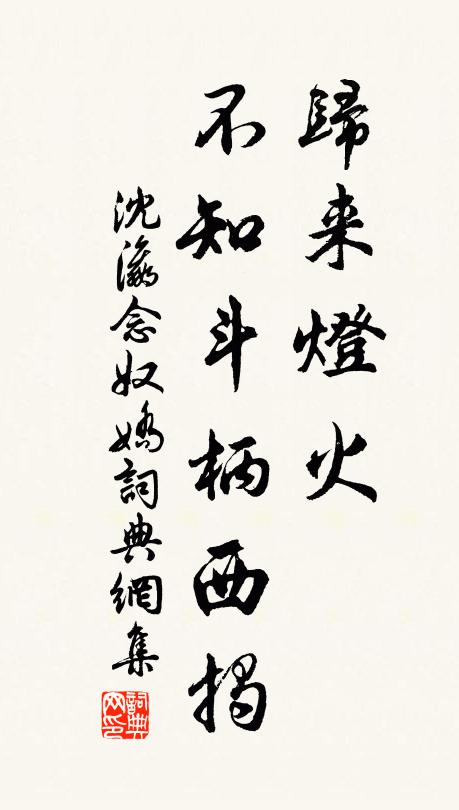 歸来燈火
不知斗柄西揭
沈瀛念奴嬌詞典網集
詞典网印